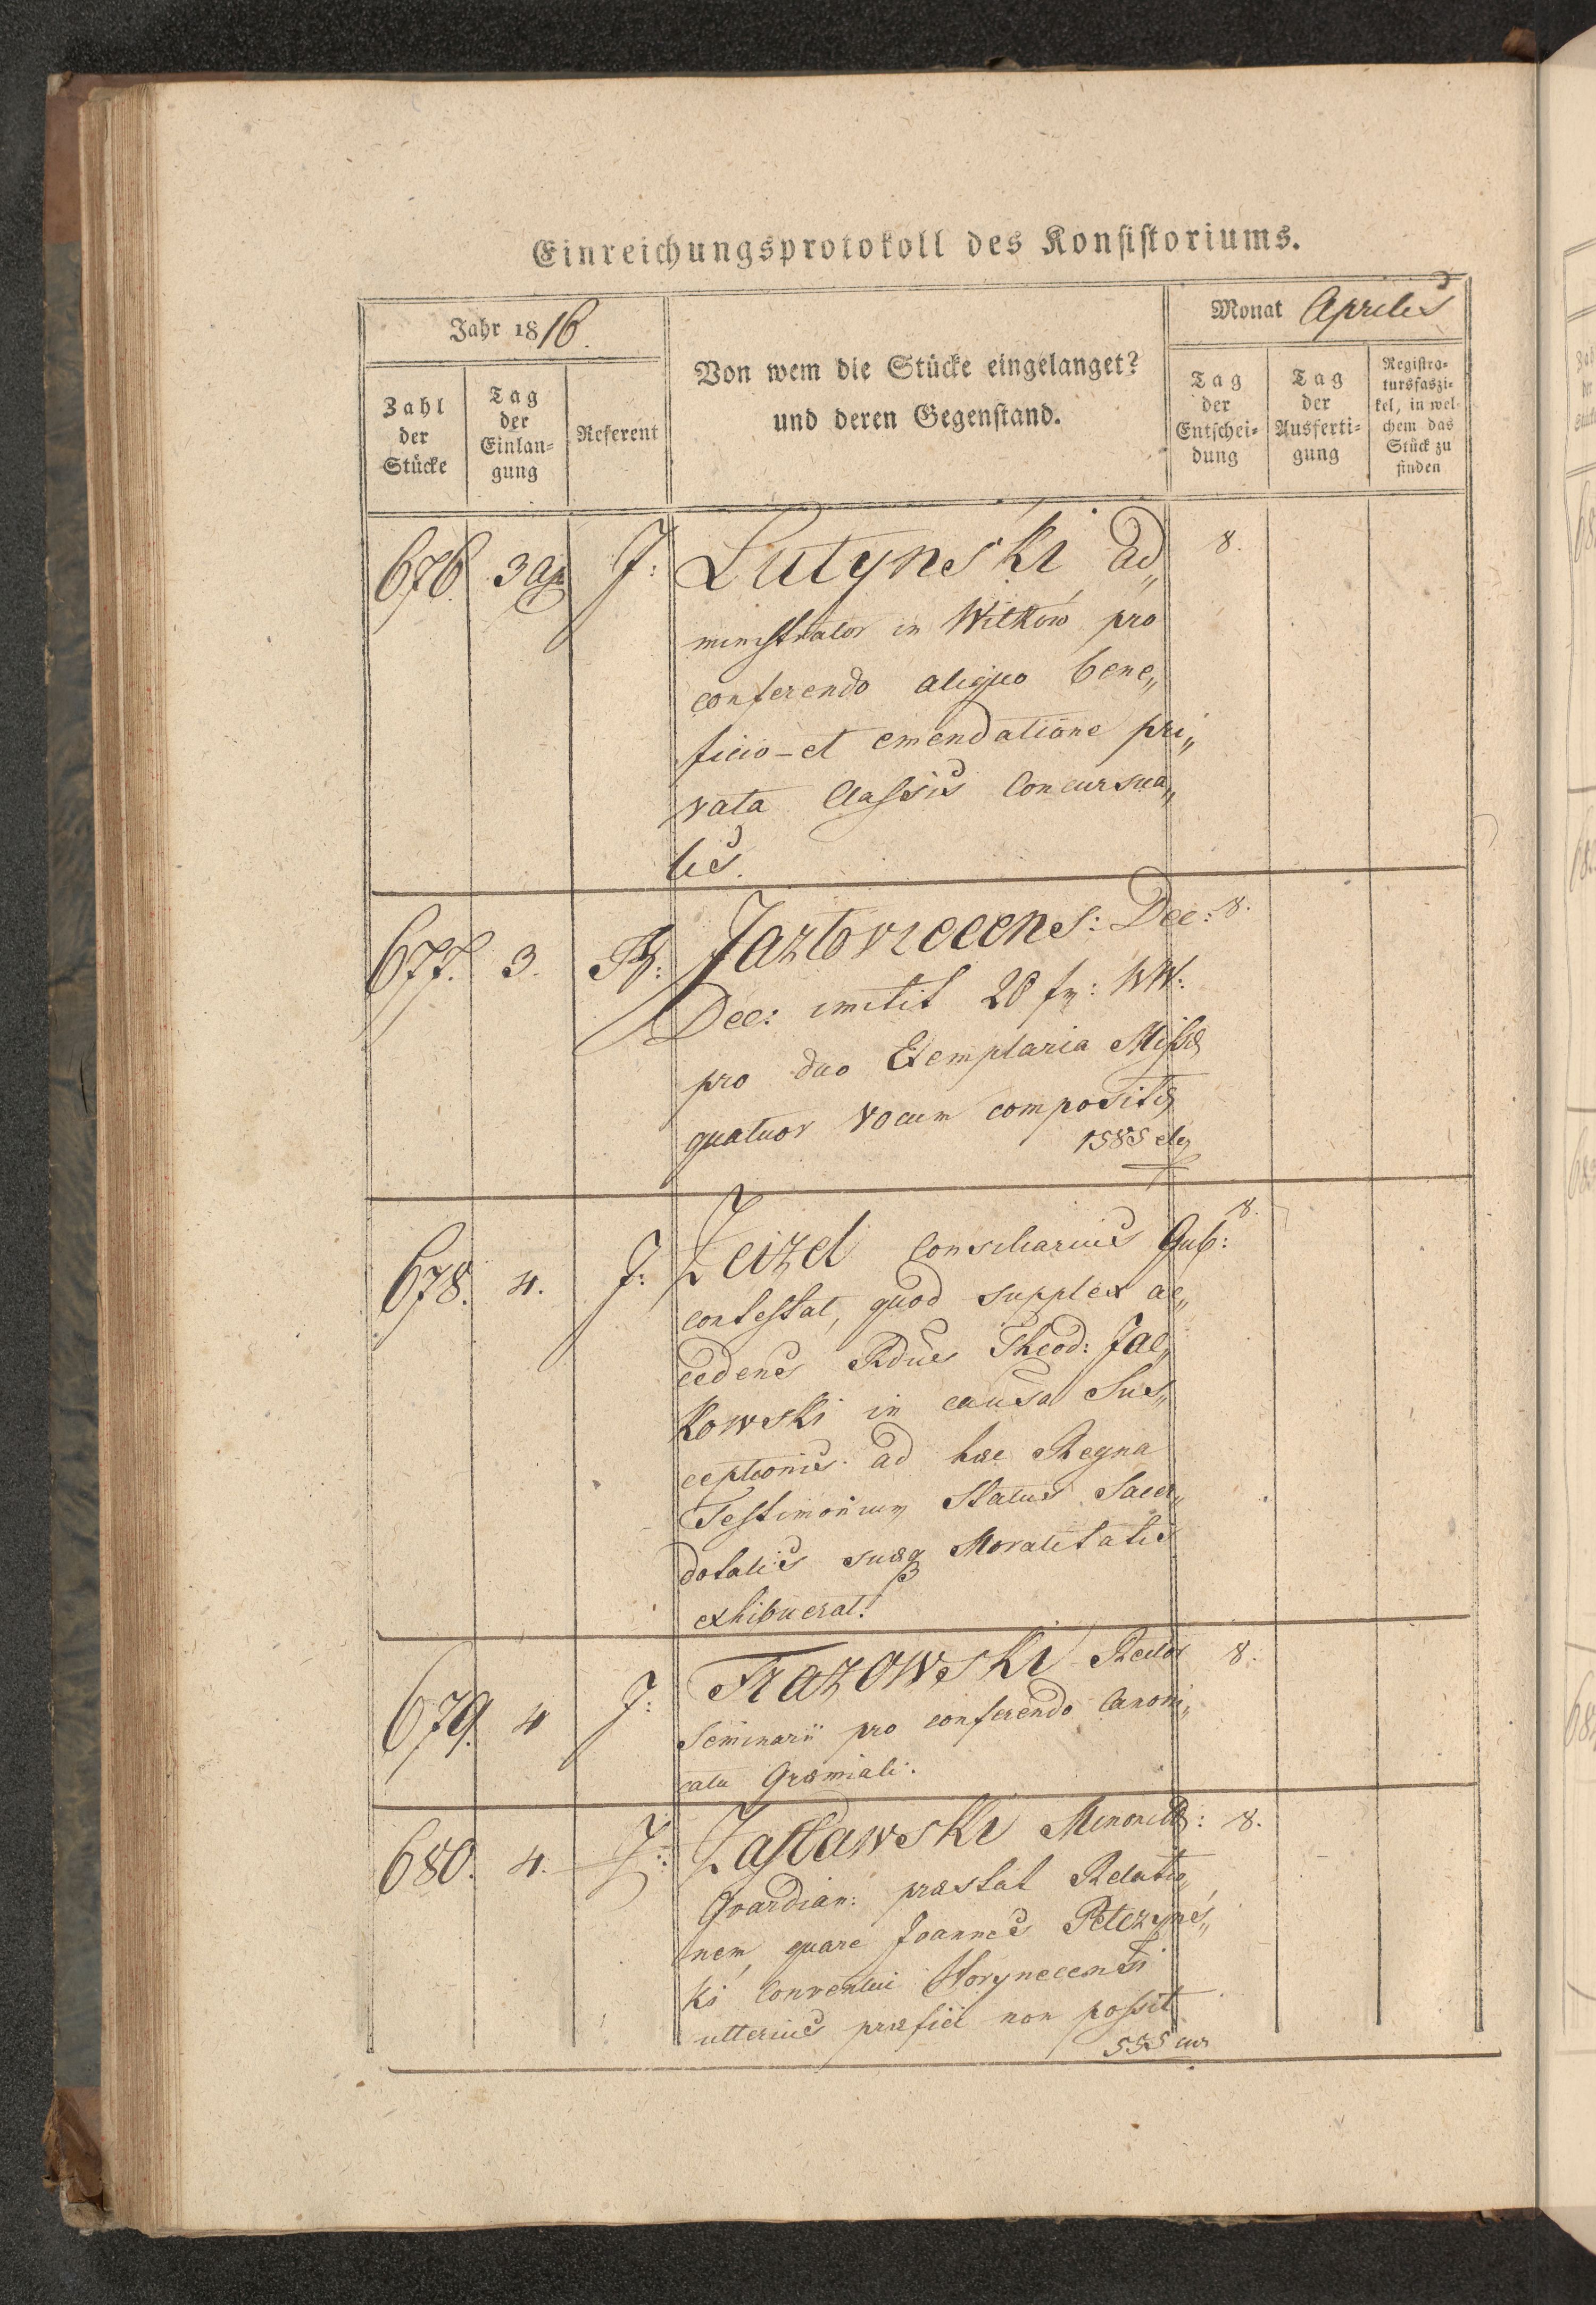 Einreichungsprotokoll des Konsistoriums.
Jahr 1816.
Monat Aprilis
Zahl der Stücke
Tag der Einlan=gung
Referent
Von wem die Stücke eingelanget?
und deren Gegenstand.
Tag der Entschei=dung
Tag der Ausferti=gung
Registra=tursfaszi=kel, in wel=chem das Stück zu finden
676. 3 Ap J: Lutynski, ad„ 8.
ministrator in Witkow, pro
conferendo aliquo bene„
ficio – et emendatione pri„
vata Classis Concursua„
lis.
677. 3. Jazloviecens: Dec: 8.
Dec: mitit 20 fr: WW:
pro duo Exemplaria Missæ
quatuor vocum compositæ
1585
678. 4. J: Zeizel Consiliarius Gub: 8.
contestat, quod supplex ac„
cedens Rdus Theod: Jac„
kowski in causa Sus„
ceptionis ad hæc Regna
Testimonium Status Sacer„
dotalis suæq Moralitatis
exhibuerat.
679. 4 J: Frazowski Rector 8.
Seminarii pro conferendo Canoni„
catu Gremiali.
680. 4. Zaslawski Minorit: 8.
Gvardian: præstat Relatio„
nem, quare Joannes Pelczyńs„
ki Conventui Horynecensi
ulterius præfici non possit
555